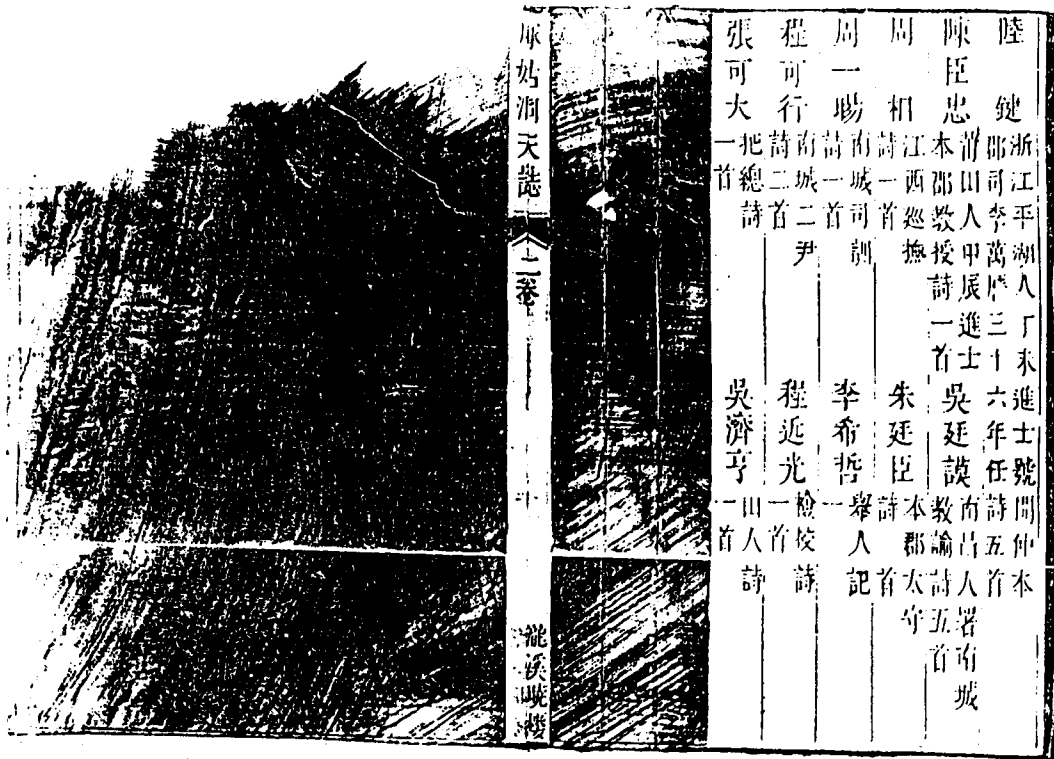 陸 鍵 浙江平湖人丁未進士號開仲本
郡司李萬曆三十六年任詩五首
陳臣忠 莆田人甲辰進士
本郡教授詩一首
吳廷謨 南昌人署南城
教諭詩五首
周 相 江西巡撫
詩一首
朱廷臣 本郡太守
詩 首
周一暘 南城司訓
詩一首
李希哲 舉人記
一
程可行 南城二尹
詩二首
程近光 檢校詩
一首
張可大 把總詩
一首
吳濟亨 山人詩
一首
麻姑洞天誌
二卷
十